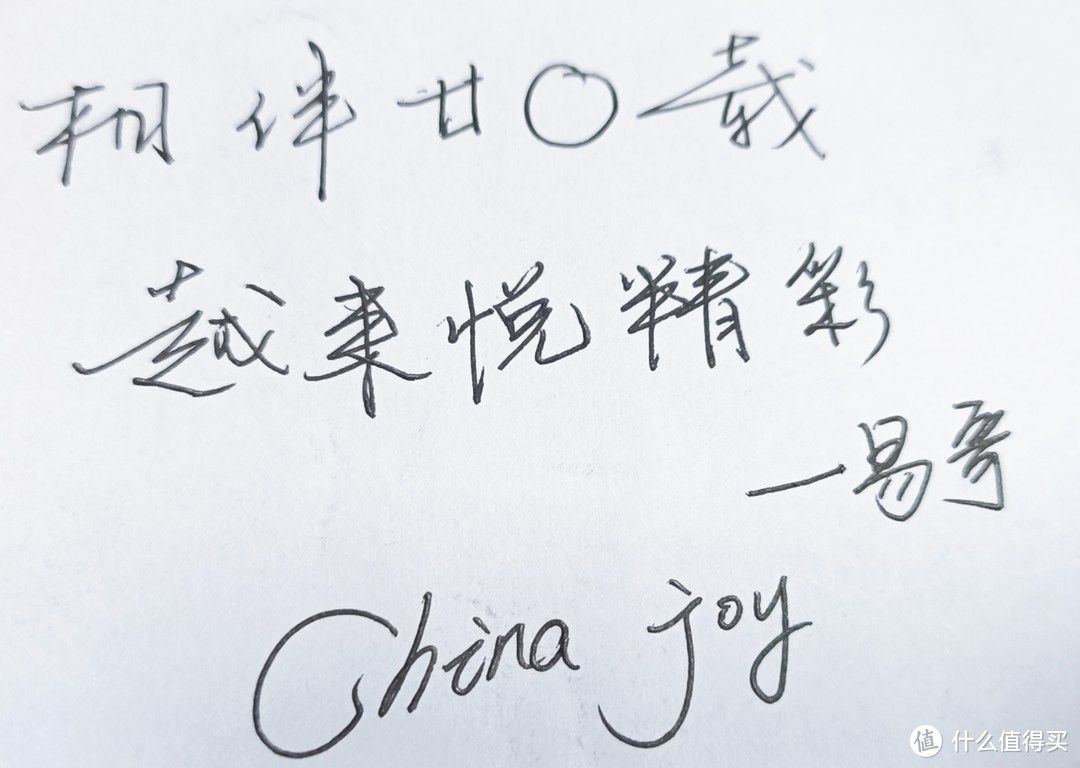 相伴廿〇载
越来悦精彩
一易哥
China joy
值 什么值得买